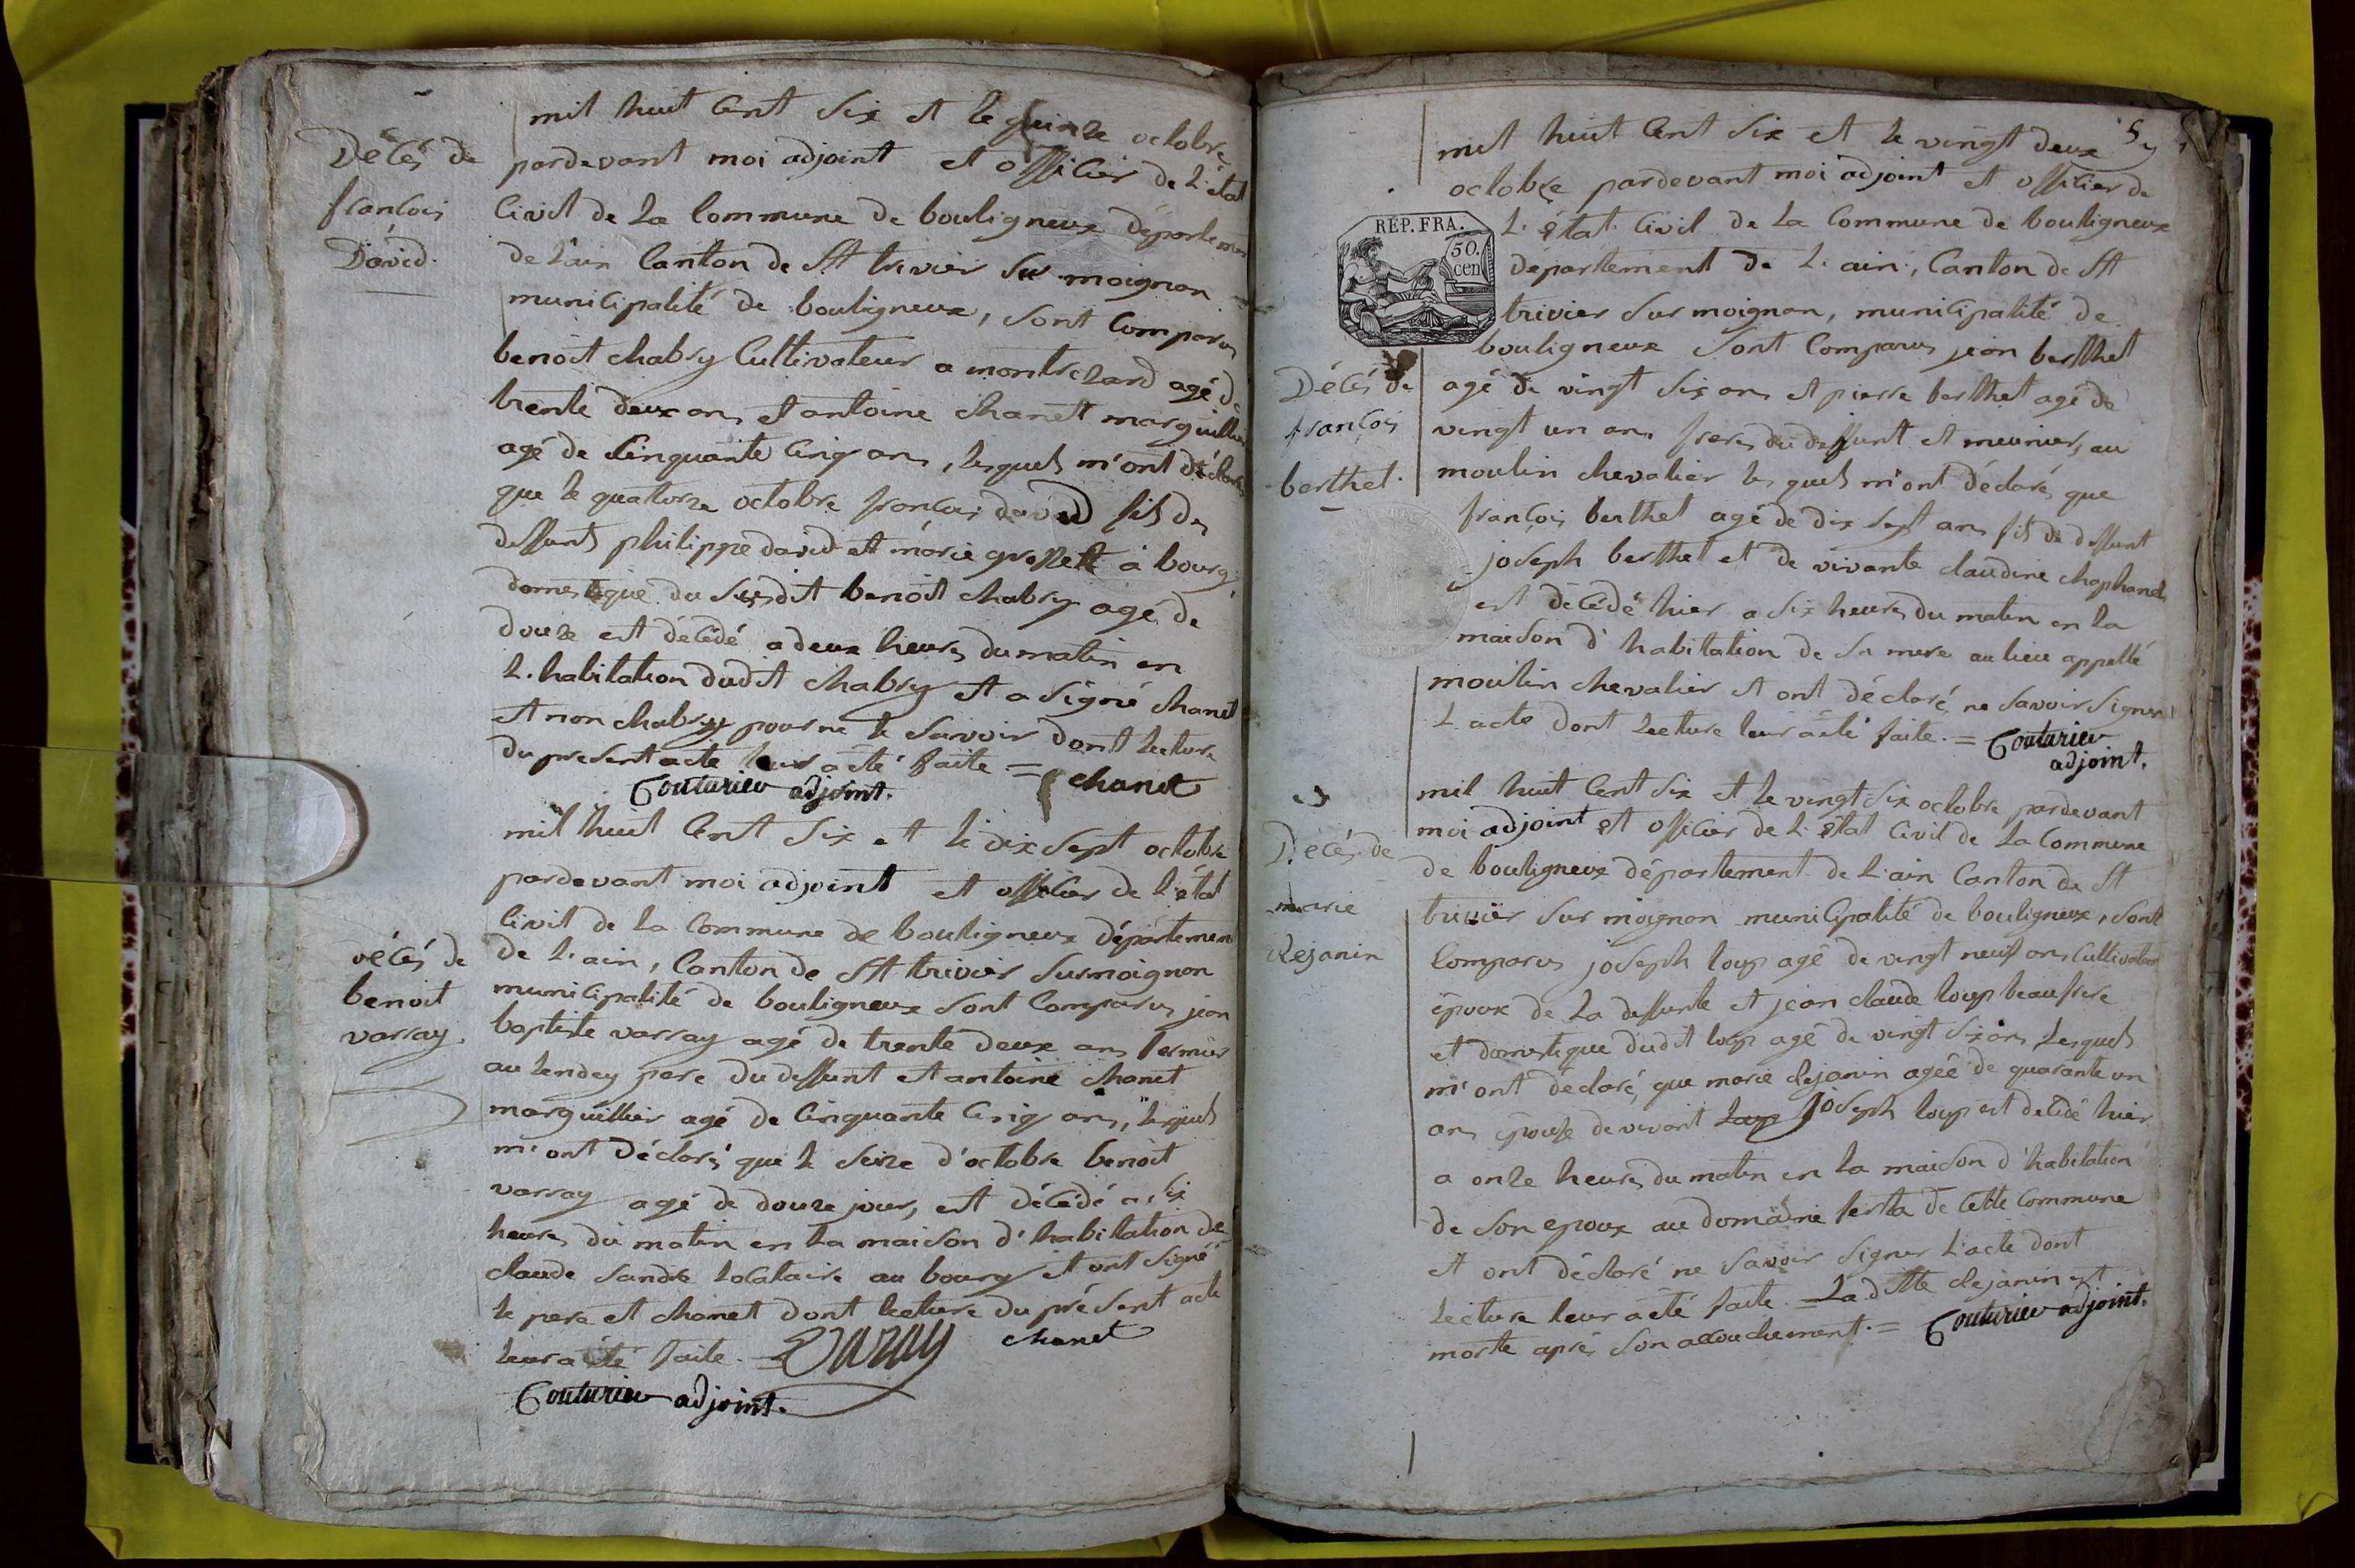 mil huit cent six et le quinze octobre
Décés de
françois
David.
pardevant moi adjoint et officier de l'état
civil de la commune de bouligneux départemen
de l'ain canton de St trivier sur moignon
municipalité de bouligneux, sont comparus
benoit chabry cultivateur a montrezard agé de
trente deux ans et antoine chanet marguillier
agé de cinquante cinq ans, lesquels m'ont déclarés
que le quatorze octobre françois david fils des
deffunts philippe david et marie grosset à bourg,
domestique du susdit benoit chabry agé de
douze est décédé a deux heures du matin en
l'habitation dudit chabry et a signé chanet
et non chabry pour ne le savoir dont lecture
du present acte leur a été faite = chanet
Couturier adjoint.
mil huit cent six et le dix sept octobre
pardevant moi adjoint et officier de l'état
civil de la commune de bouligneux département
décés de
benoit
varray.
de l'ain, canton de St trivier sur moignon
municipalité de bouligneux sont comparus jean
baptiste varray agé de trente deux ans fermier
au dendey pere du deffunt et antoine chanet
marguillier agé de cinquante cinq ans, lesquels
m'ont déclaré que le seize d'octobre benoit
varray agé de douze jours, est décédé a six
heures du matin en la maison d'habitation de
claude sandre locataire au bourg et ont signé
le pere et chanet dont lecture du présent acte
leur a été faite. = Varay chanet
Couturier adjoint.
5
mil huit cent six et le vingt deux
octobre pardevant moi adjoint et officier de
REP. FRA.
50.
cen
l'état civil de la commune de bouligneux
département de l'ain, canton de St
trivier sur moignon, municipalité de
bouligneux sont comparus jean berthet
Décés de
françois
berthet.
agé de vingt six ans et pierre berthet agé de
vingt un ans freres du deffunt et meuniers, au
moulin chevalier les quels m'ont déclaré, que
françois berthet agé de dix sept ans fils de deffunt
joseph berthet et de vivante claudine chaphanel
est décédé hier a six heures du matin en la
maison d'habitation de sa mere au lieu appellé
moulin chevalier et ont déclaré ne savoir signer
l'acte dont lecture leur a été faite. = Couturier
adjoint.
mil huit cent six et le vingt six octobre pardevant
moi adjoint et officier de l'état civil de la commune
Décés de
marie
dejanin
de bouligneux département de l'ain canton de St
trivier sur moignon municipalité de bouligneux, sont
comparus joseph loup agé de vingt neuf ans cultivateur
époux de la deffunte et jean claude loup beaufrere
et domestique dudit loup agé de vingt six ans lesquels
m'ont déclaré, que marie dejanin agée de quarante un
ans épouse de vivant loup joseph loup est décédé hier
a onze heures du matin en la maison d'habitation
de son epoux au domaine de cette commune
et ont déclaré ne savoir signer l'acte dont
lecture leur a été faite. = La ditte dejanin est
morte après son accouchement. = Couturier adjoint.